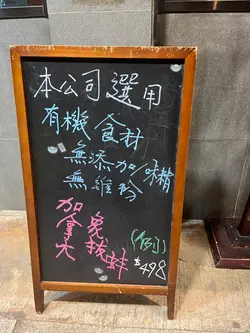 本公司選用
有機食材
無添加/味精
無雞粉
加拿大
象拔蚌
(例)
$498